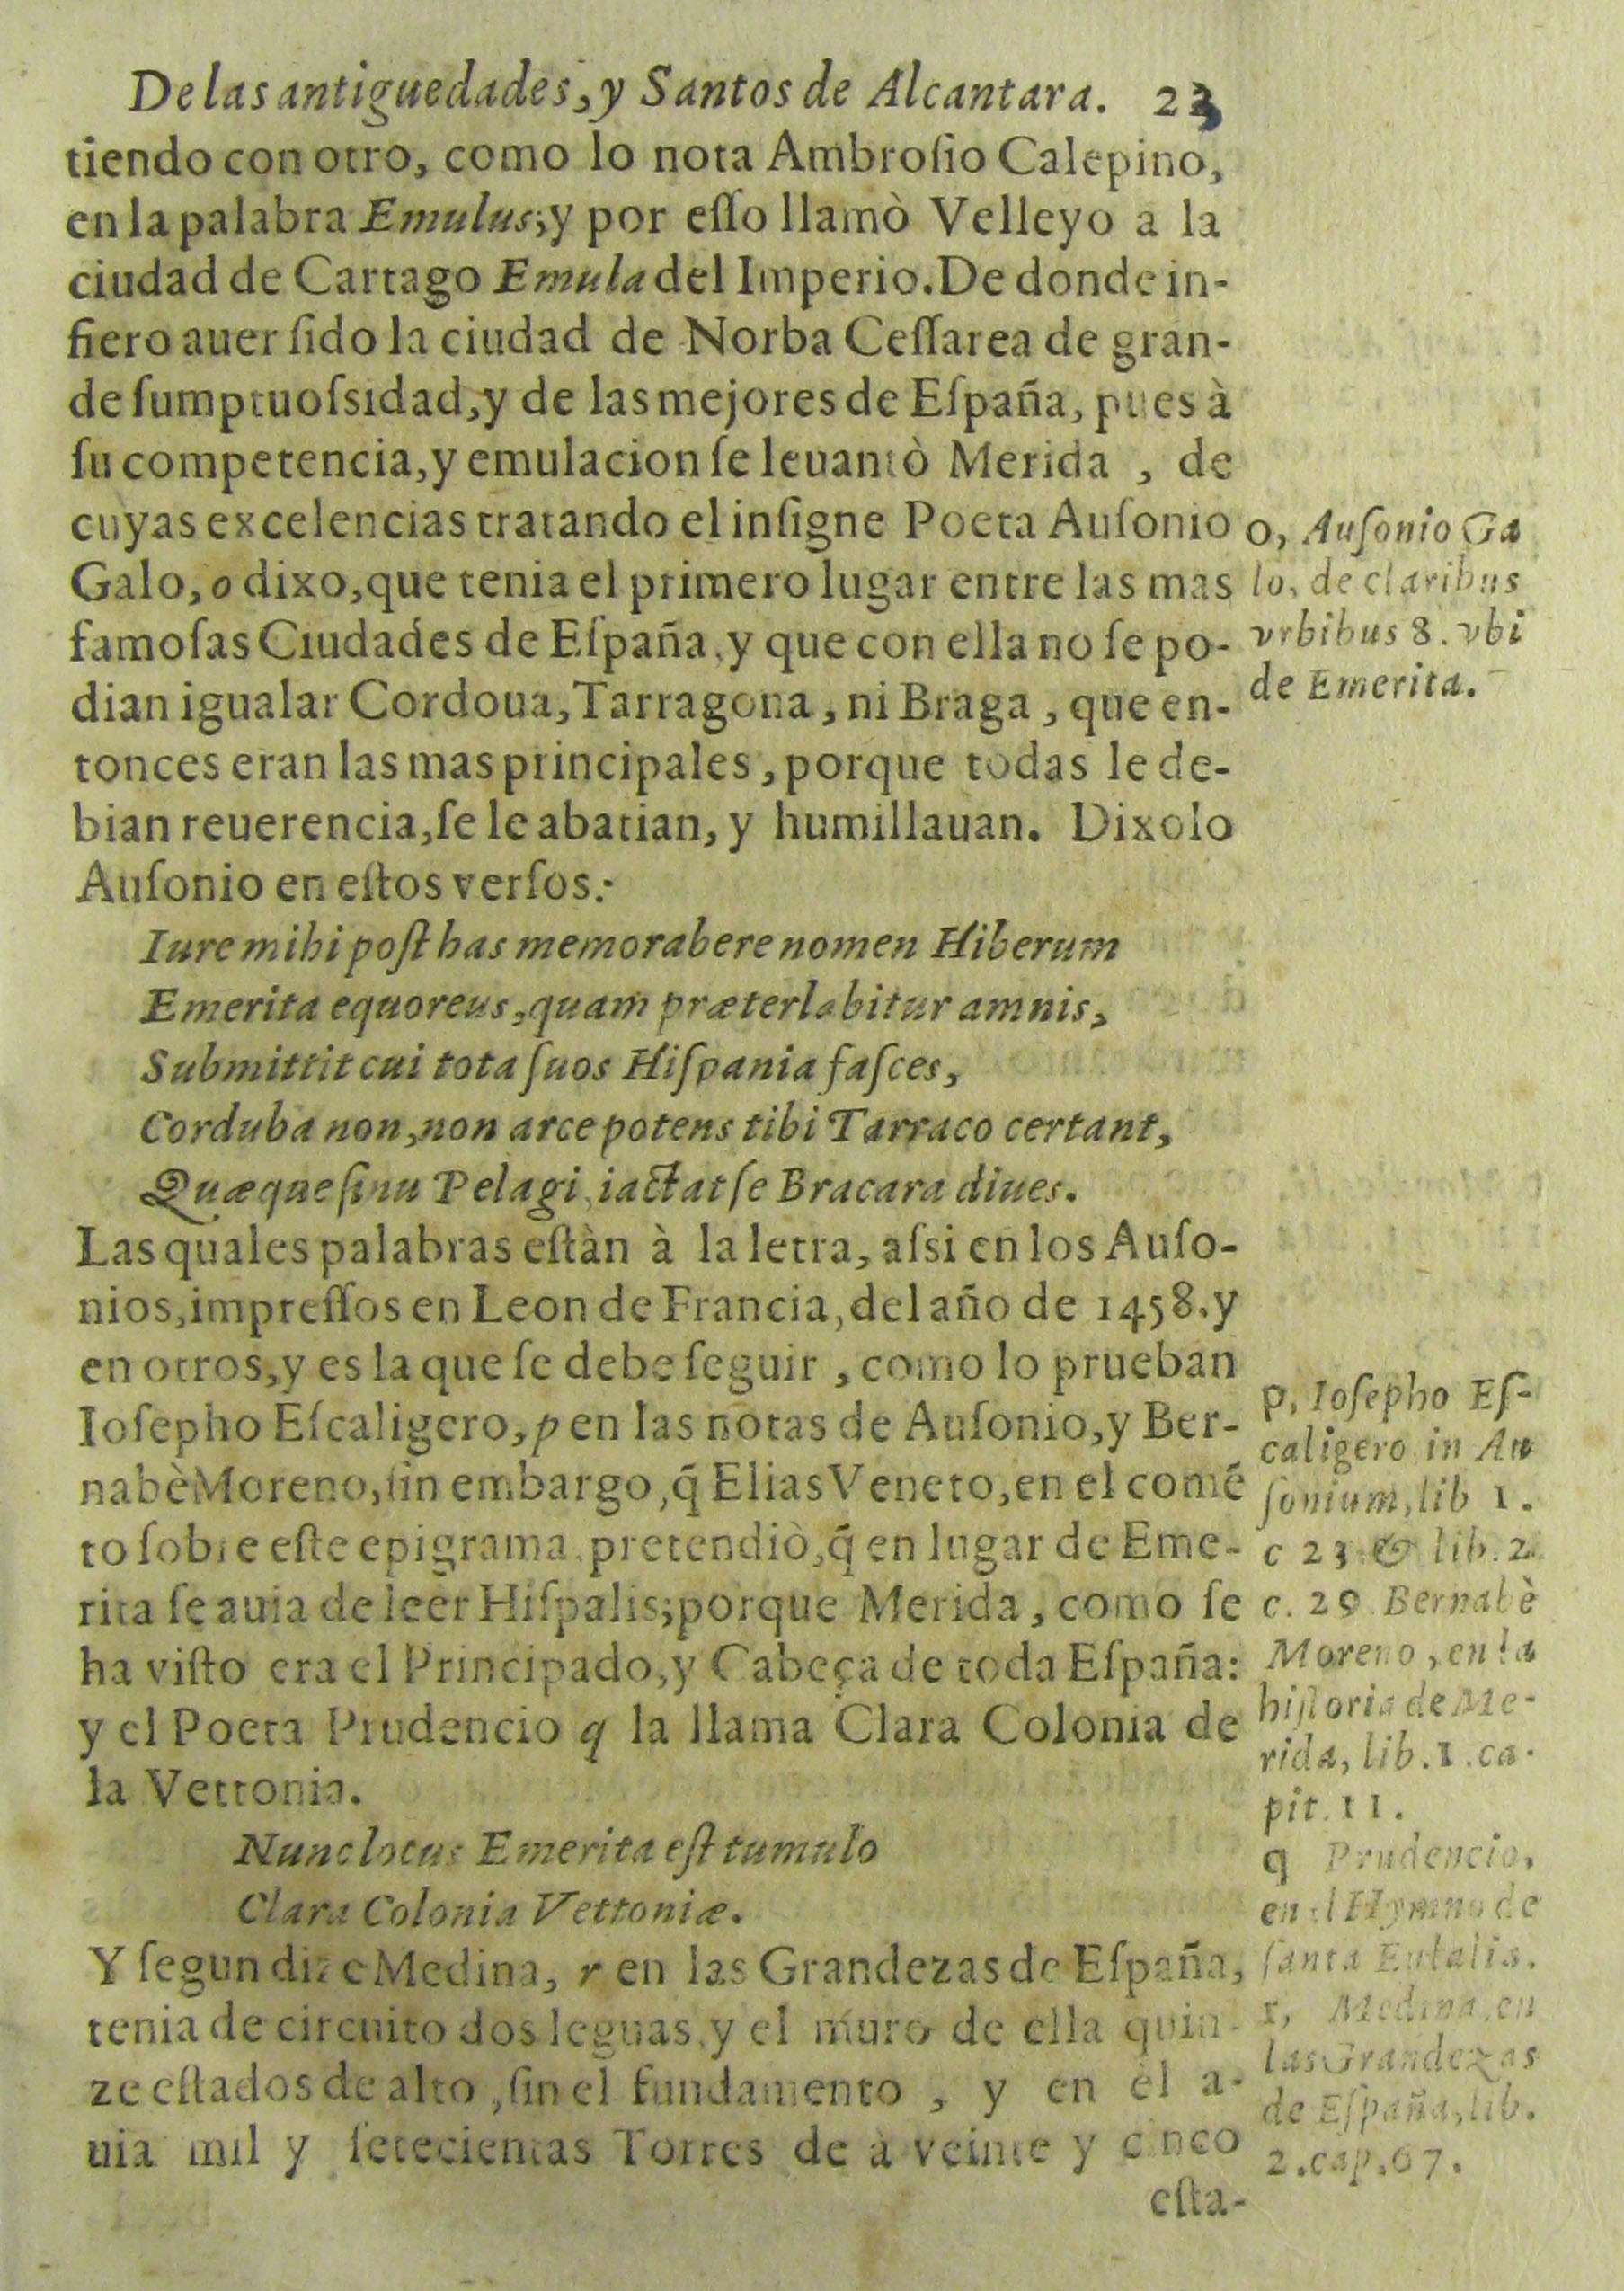 De las antiguedades, y Santos de Alcantara. 23
tiendo con otro, como lo nota Ambroſio Calepino,
en la palabra Emulus; y por eſſo llamò Velleyo a la
ciudad de Cartago Emula del Imperio. De donde in-
fiero auer ſido la ciudad de Norba Ceſſarea de gran-
de ſumptuoſsidad, y de las mejores de Eſpaña, pues à
ſu competencia, y emulacion ſe leuantò Merida , de
cuyas excelencias tratando el inſigne Poeta Auſonio
Galo, o dixo, que tenia el primero lugar entre las mas
famoſas Ciudades de Eſpaña, y que con ella no ſe po-
dian igualar Cordoua, Tarragona, ni Braga , que en-
tonces eran las mas principales , porque todas le de-
bian reuerencia, ſe le abatian, y humillauan. Dixolo
Auſonio en eſtos verſos:
Iure mihi poſt has memorabere nomen Hiberum
Emerita equoreus, quam præterlabitur amnis,
Submittit cui tota ſuos Hiſpania faſces,
Corduba non, non arce potens tibi Tarraco certant,
Quæque ſinu Pelagi, iactat ſe Bracara diues.
Las quales palabras eſtàn à la letra, aſsi en los Auſo-
nios, impreſſos en Leon de Francia, del año de 1458. y
en otros, y es la que ſe debe ſeguir , como lo prueban
Ioſepho Eſcaligero, p en las notas de Auſonio, y Ber-
nabè Moreno, ſin embargo, q̃ Elias Veneto, en el comẽ
to ſobre eſte epigrama, pretendiò, q̃ en lugar de Eme-
rita ſe auia de leer Hiſpalis; porque Merida , como ſe
ha viſto era el Principado, y Cabeça de toda Eſpaña:
y el Poeta Prudencio q la llama Clara Colonia de
la Vettonia.
Nunc locus Emerita eſt tumulo
Clara Colonia Vettoniæ.
Y ſegun dize Medina, r en las Grandezas de Eſpaña,
tenia de circuito dos leguas, y el muro de ella quin-
ze eſtados de alto , ſin el fundamento , y en èl a-
uia mil y ſetecientas Torres de à veinte y cinco
eſta-
o, Auſonio Ga
lo, de claribus
vrbibus 8. vbi
de Emerita.
p, Ioſepho Eſ-
caligero in Au
ſonium, lib 1.
c 23 & lib. 2.
c. 29 Bernabè
Moreno , en la
hiſtoria de Me-
rida, lib. 1. ca-
pit. 11.
q Prudencio,
en el Hymno de
ſanta Eulalia.
r, Medina, en
las Grandezas
de Eſpaña, lib.
2. cap. 67.